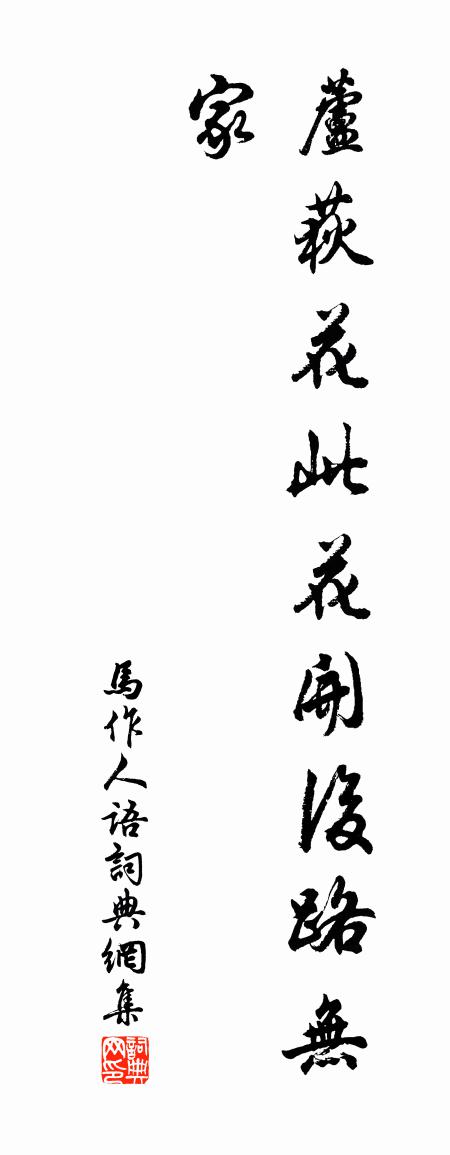 蘆萩花此花開後路無
家
馬作人语詞典網集
詞典网印